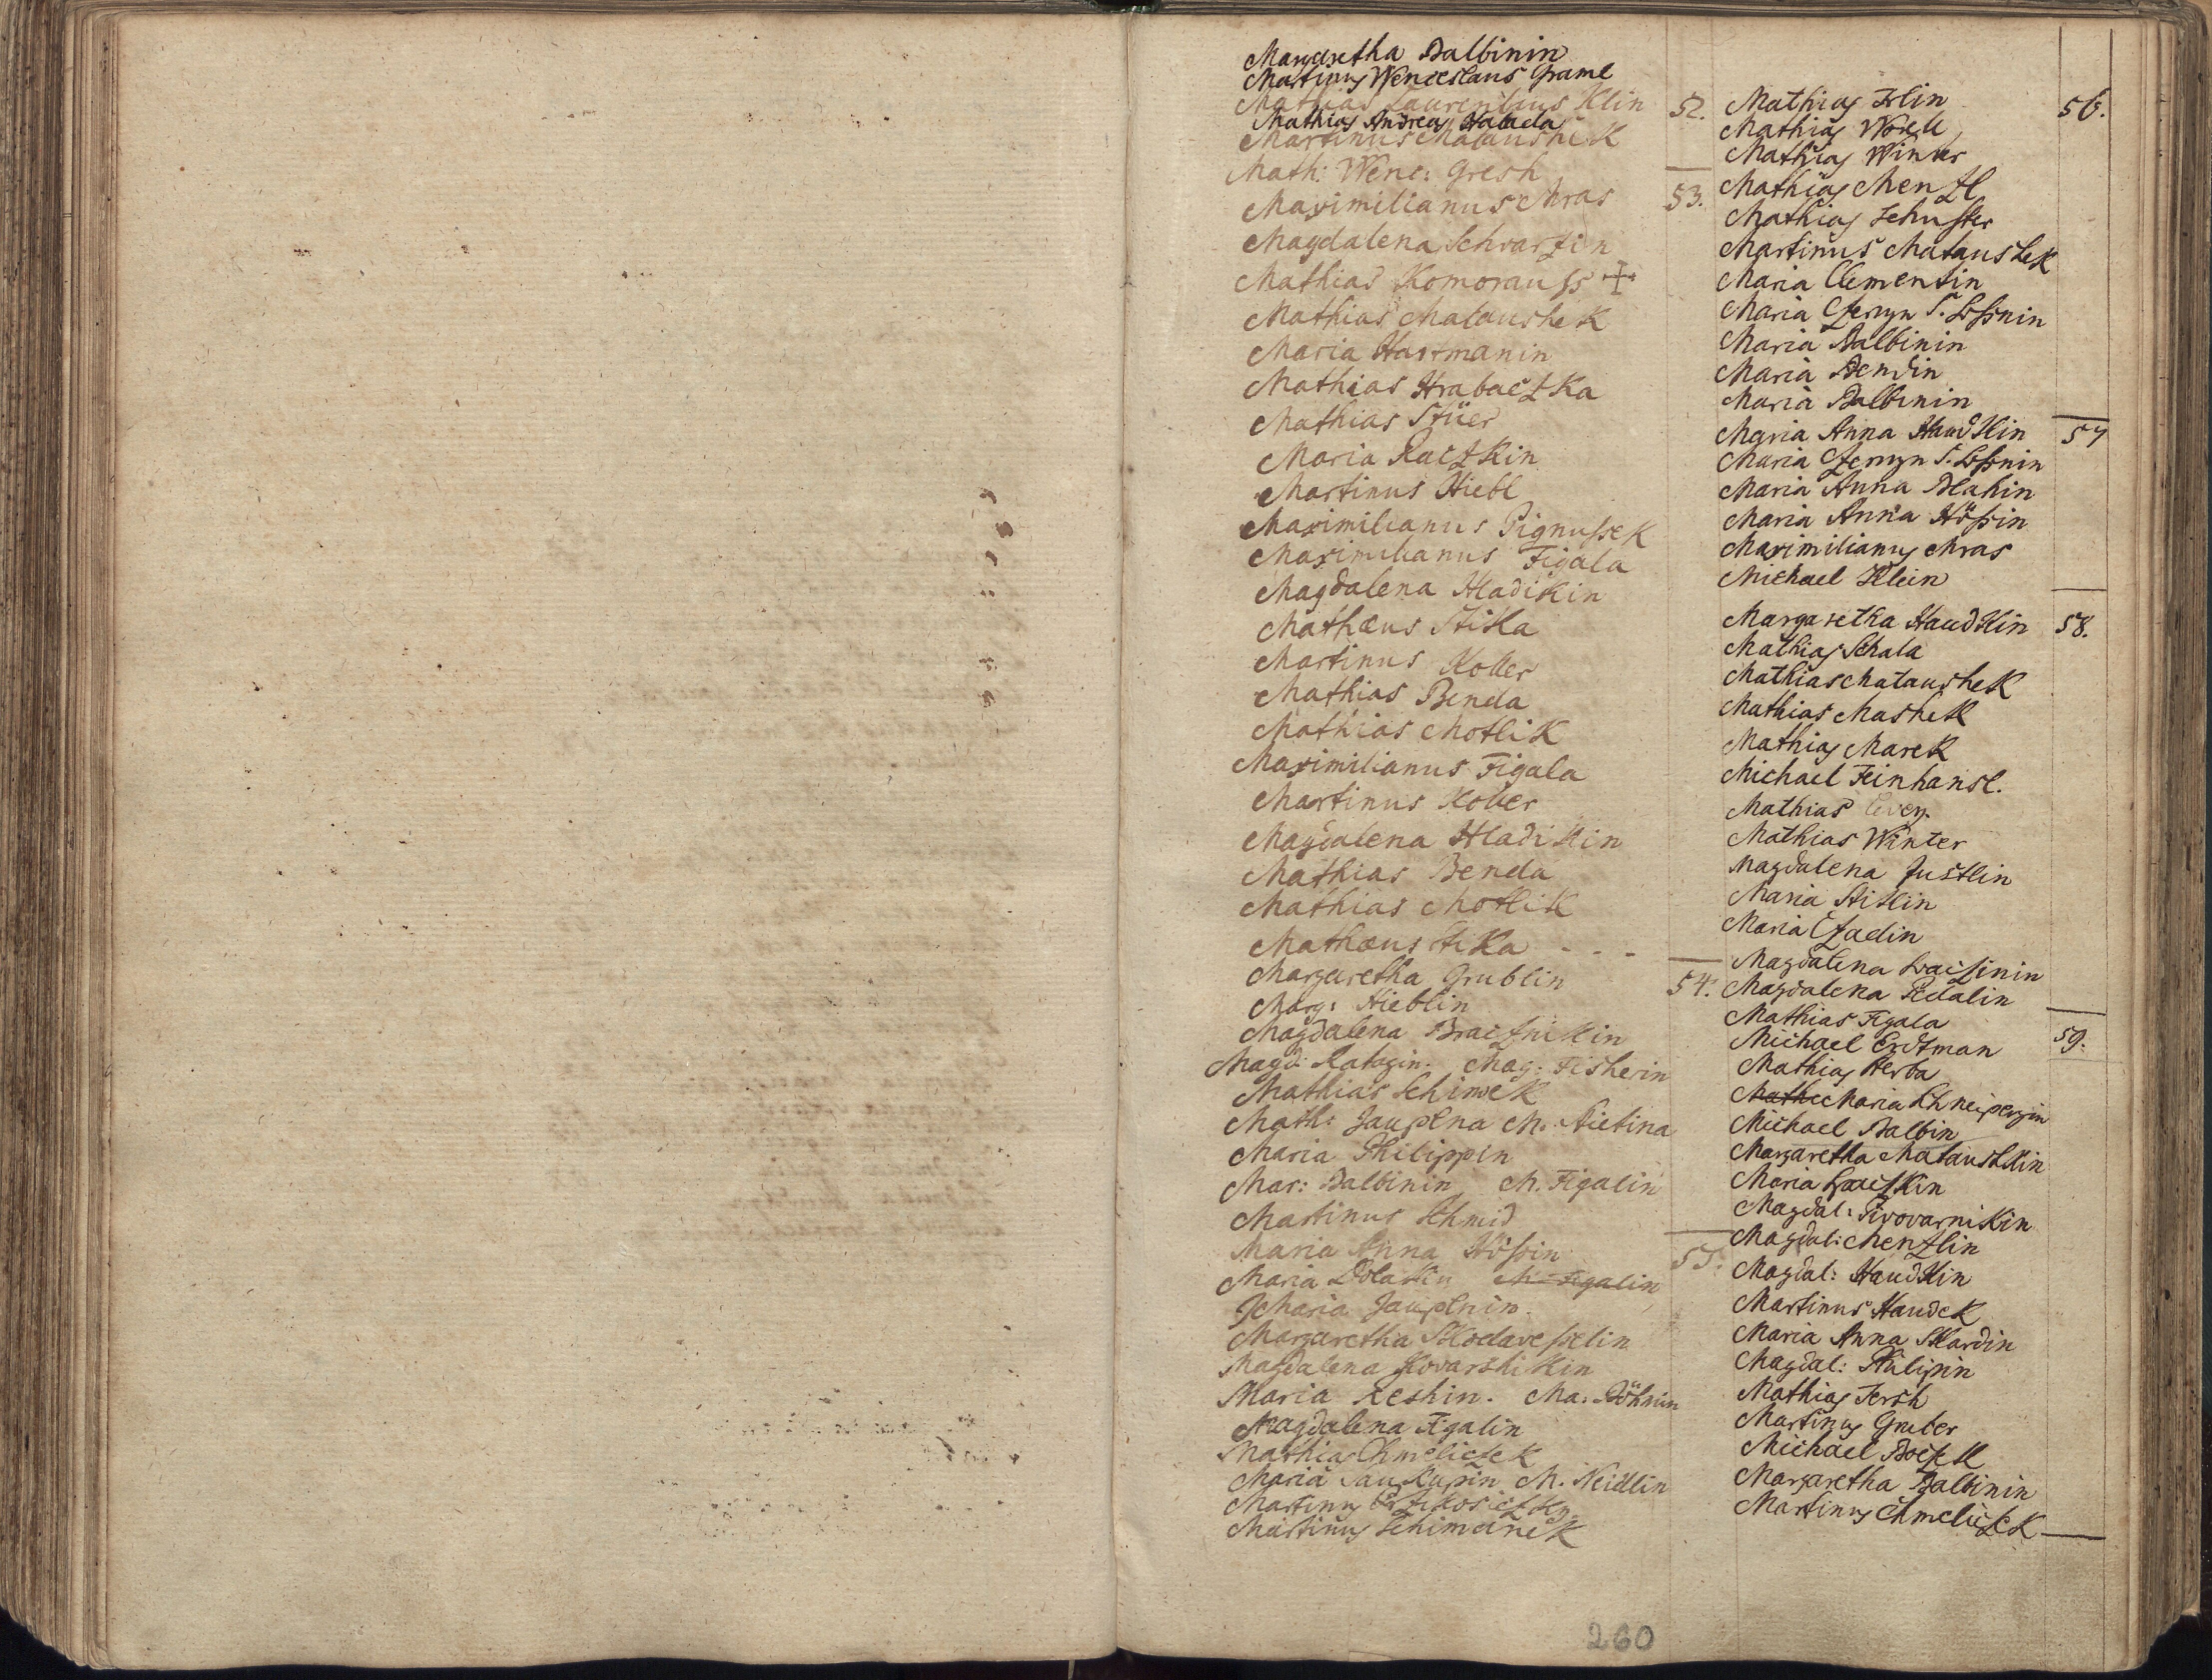 Margaretha Balbinin
Martinus Wenceslaus Graml
Mathias Laurentius Klin 52.
Mathias Andreas Halada
Martinus Mataushek
Math: Wenc: Gresh
Maximilianus Mras 53.
Magdalena Schvarzin
Mathias Komorauss +
Mathias Mataushek
Maria Hartmanin
Mathias Hrabaczka
Mathias Stüer
Maria Raczkin
Martinus Hiebl
Maximilianus Pignussek
Maximilianus Figala
Magdalena Hladikin
Mathæus Stika
Martinus Koller
Mathias Benda
Mathias Motlik
Maximilianus Figala
Martinus Koller
Magdalena Hladikin
Mathias Benda
Mathias Motlik
Mathæus Stika - - -
Margaretha Grublin 54.
Marg: Hieblin
Magdalena Bracznikin
Magd: Mag: Fisherin
Mathias Schimek
Math: Jauplna M.
Maria Philippin
Mar: Balbinin M. Figalin
Martinus Schmid
Maria Anna Hössin 55.
Maria M. Figalin
Maria Jauplnin.
Margaretha
Magdalena Kovarshikin
Maria Reshin. Ma. Böhmin
Magdalena Figalin
Mathias Chmeliczek
Maria Saukupin M. Neidlin
Martinus
Martinus Schimanek
Mathias Irlin 56.
Mathias
Mathias Winter
Mathias Menzl
Mathias Schuster
Martinus Mataushek
Maria Clementin
Maria Czernyn
Maria Balbinin
Maria Bendin
Maria Balbinin
Maria Anna Haudkin 57
Maria Czernyn
Maria Anna Blahin
Maria Anna Hössin
Maximilianus Mras
Michael Klein
Margaretha Haudkin 58.
Mathias Schala
Mathias Mataushek
Mathias Mashek
Mathias Marek
Michael Feinhansl.
Mathias
Mathias Winter
Magdalena Justlin
Maria Stiklin
Maria Czadin
Magdalena
Magdalena
Mathias Figala
Michael Erdtman 59.
Mathias Herba
Mathi Maria
Michael Balbin
Margaretha Mataushkin
Maria
Magdal: Pivovarnikin
Magdal: Menzlin
Magdal: Haudkin
Martinus Haudek
Maria Anna Skardin
Magdal: Philipin
Mathias Fersh
Martinus Gruber
Michael
Margaretha Balbinin
Martinus Chmeliczek
260